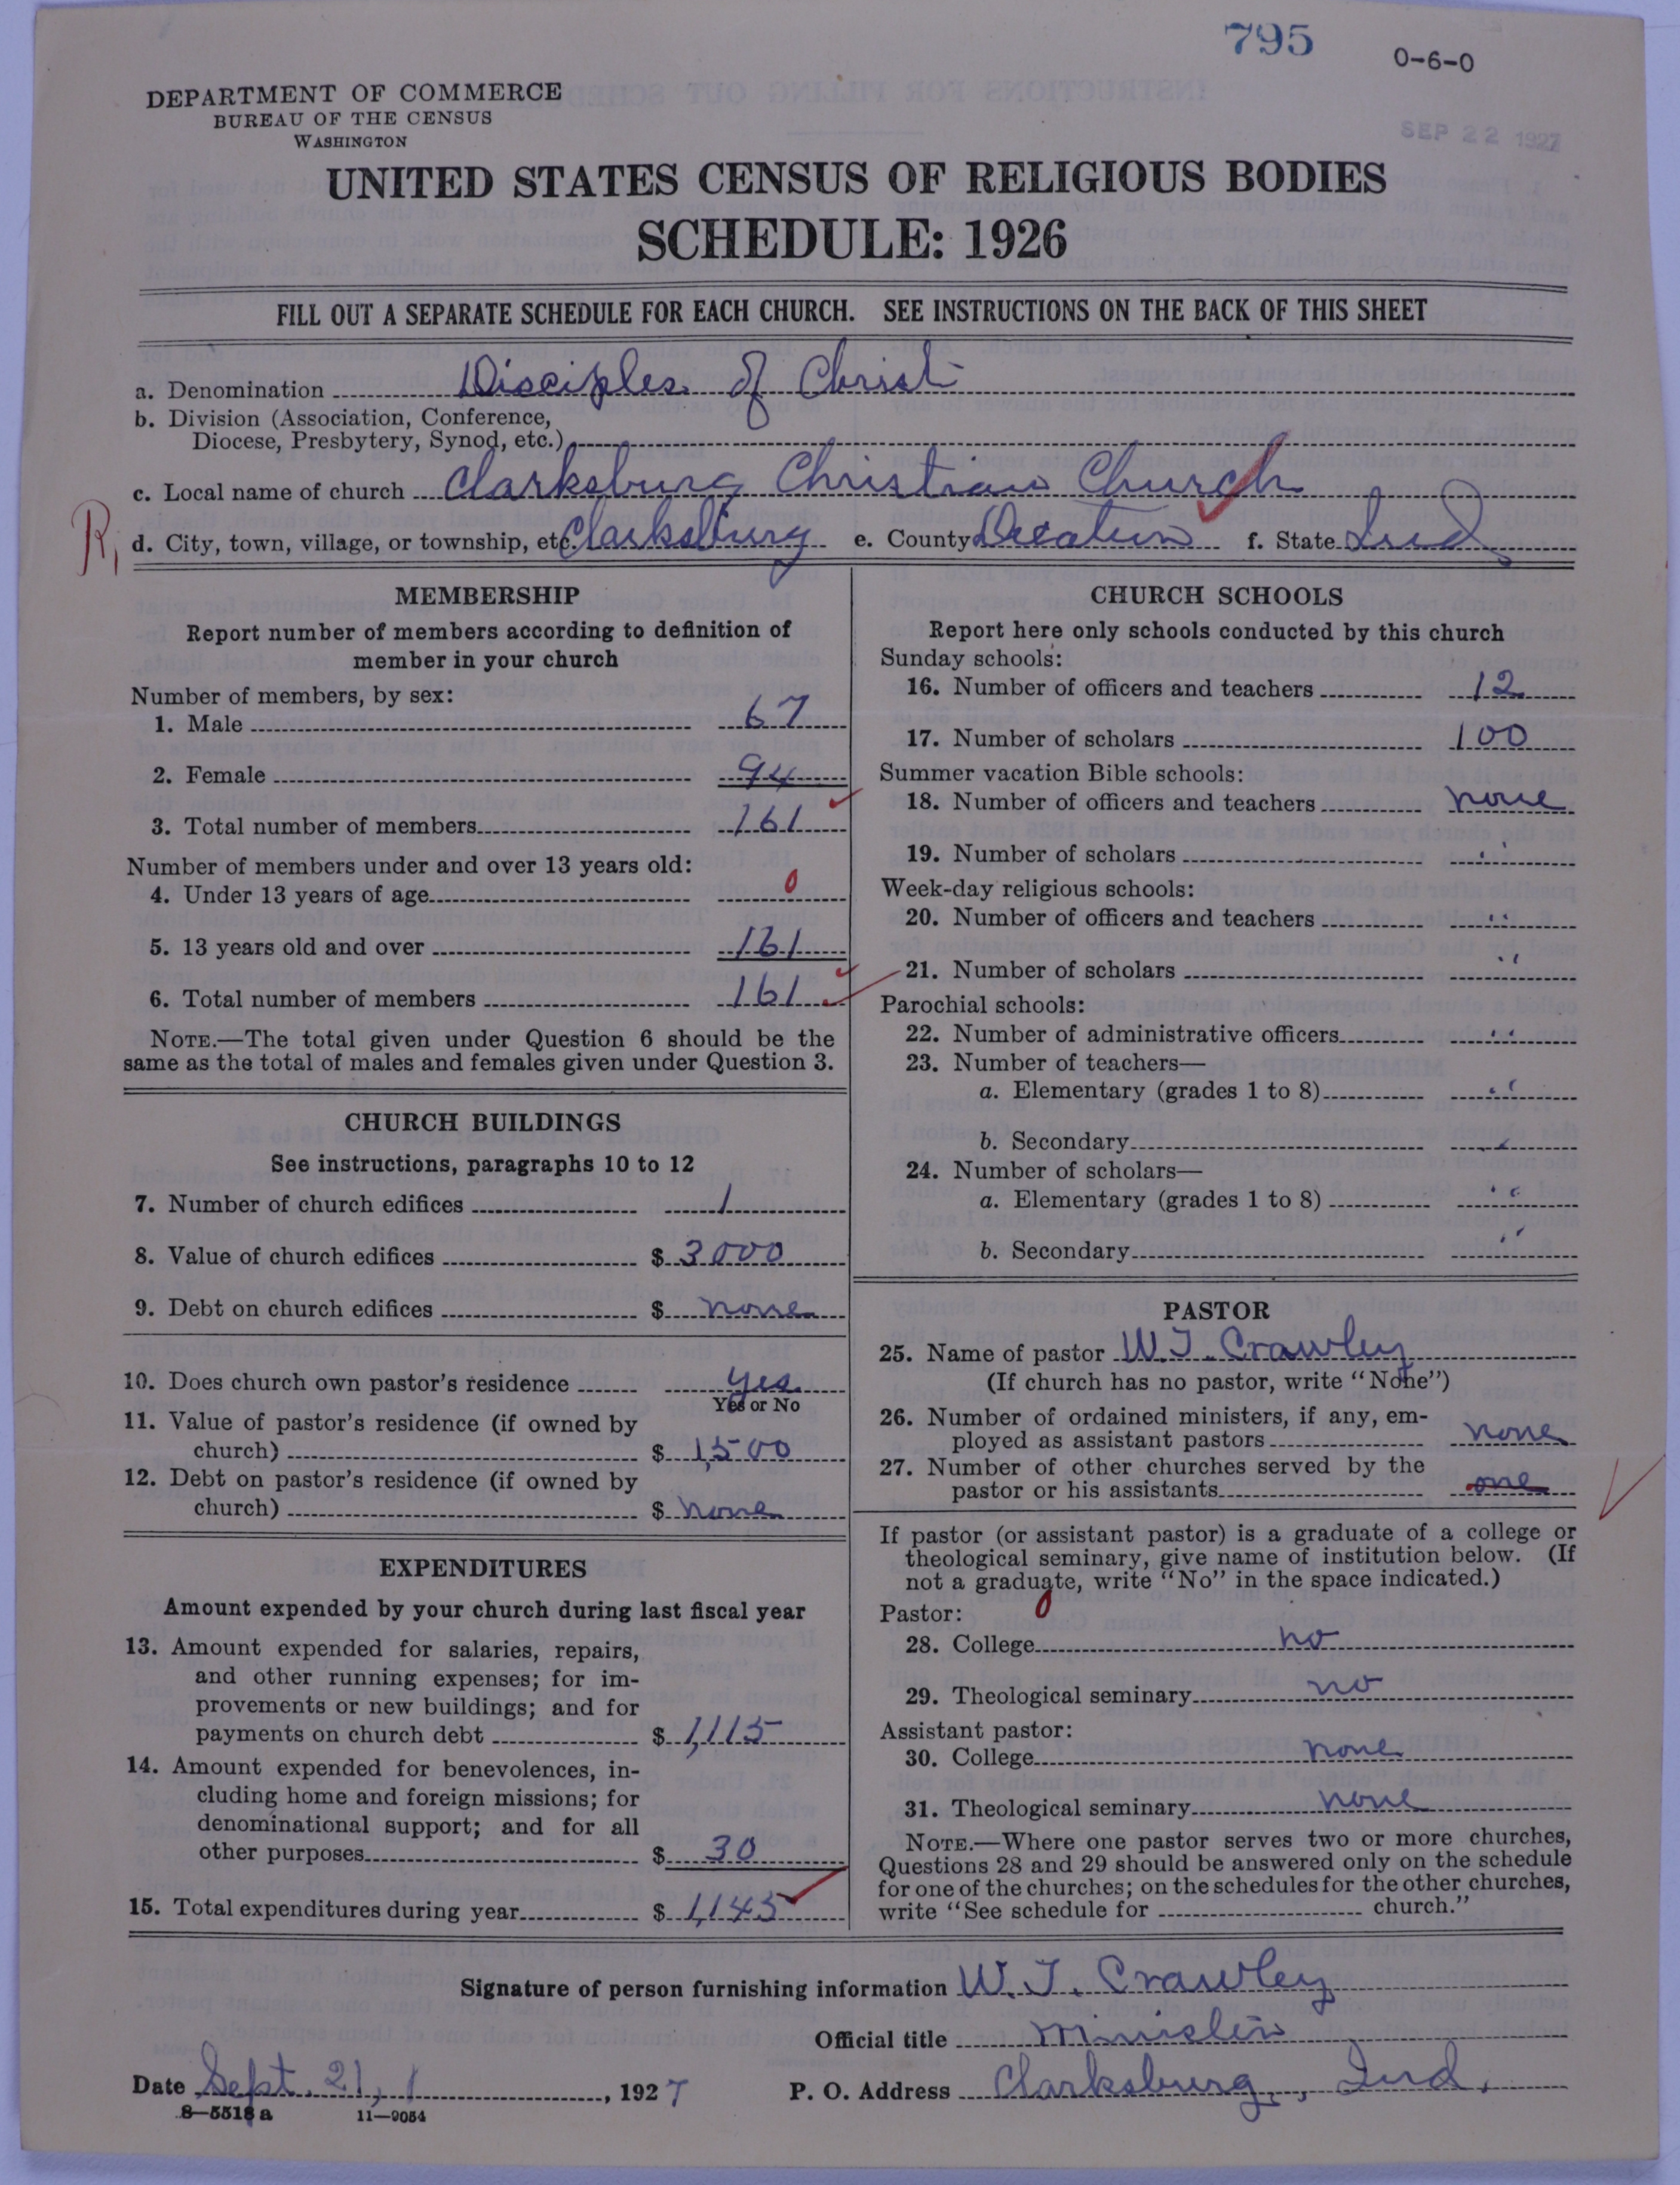 795
0-6-0
DEPARTMENT OF COMMERCE
BUREAU OF THE CENSUS
WASHINGTON
SEP 22 1927
UNITED STATES CENSUS OF RELIGIOUS BODIES
SCHEDULE: 1926
FILL OUT A SEPARATE SCHEDULE FOR EACH CHURCH. SEE INSTRUCTIONS ON THE BACK OF THIS SHEET
a. Denomination Disciples of Christ
b. Division (Association, Conference,
Diocese, Presbytery, Synod, etc.)
c. Local name of church Clarksburg Christian Church
R, d. City, town, village, or township, etc. Clarksburg e. County Decatur f. State Ind,
MEMBERSHIP
Report number of members according to definition of
member in your church
Number of members, by sex:
1. Male 67
2. Female 94
3. Total number of members 161
Number of members under and over 13 years old:
4. Under 13 years of age 0
5. 13 years old and over 161
6. Total number of members 161
NOTE.—The total given under Question 6 should be the
same as the total of males and females given under Question 3.
CHURCH BUILDINGS
See instructions, paragraphs 10 to 12
7. Number of church edifices 1
8. Value of church edifices $ 3000
9. Debt on church edifices $ none
10. Does church own pastor's residence yes
Yes or No
11. Value of pastor's residence (if owned by
church) $ 1,500
12. Debt on pastor's residence (if owned by
church) $ none
EXPENDITURES
Amount expended by your church during last fiscal year
13. Amount expended for salaries, repairs,
and other running expenses; for im-
provements or new buildings; and for
payments on church debt $ 1,115
14. Amount expended for benevolences, in-
cluding home and foreign missions; for
denominational support; and for all
other purposes $ 30
15. Total expenditures during year $ 1,145
CHURCH SCHOOLS
Report here only schools conducted by this church
Sunday schools:
16. Number of officers and teachers 12
17. Number of scholars 100
Summer vacation Bible schools:
18. Number of officers and teachers none
19. Number of scholars "
Week-day religious schools:
20. Number of officers and teachers "
21. Number of scholars "
Parochial schools:
22. Number of administrative officers "
23. Number of teachers—
a. Elementary (grades 1 to 8) "
b. Secondary "
24. Number of scholars—
a. Elementary (grades 1 to 8) "
b. Secondary "
PASTOR
25. Name of pastor W. J. Crawley
(If church has no pastor, write "None")
26. Number of ordained ministers, if any, em-
ployed as assistant pastors none
27. Number of other churches served by the
pastor or his assistants one
If pastor (or assistant pastor) is a graduate of a college or
theological seminary, give name of institution below. (If
not a graduate, write "No" in the space indicated.)
Pastor: 0
28. College no
29. Theological seminary no
Assistant pastor:
30. College none
31. Theological seminary none
NOTE.—Where one pastor serves two or more churches,
Questions 28 and 29 should be answered only on the schedule
for one of the churches; on the schedules for the other churches,
write "See schedule for church."
Signature of person furnishing information W. J. Crawley
Official title Minister
Date Sept. 21, 1927 P. O. Address Clarksburg, Ind.
8—5518 a 11—9054